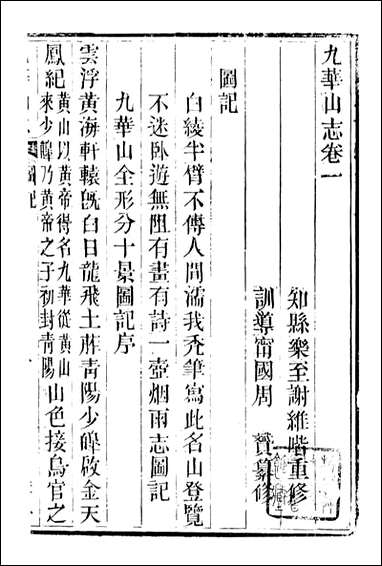 九華山志卷一
知縣樂至謝維喈重修
訓導甯國周 贇纂修
圖記
白綾半臂不傳人間濡我禿筆寫此名山登覽
不迷臥遊無阻有畫有詩一壺烟雨志圖記
九華山全形分十景圖記序
雲浮黃海軒轅旣白日龍飛土胙青陽少皥啟金天
鳳紀黃山以黃帝得名九華從黃山
來少皥乃黃帝之子初封青陽山色接鳥官之